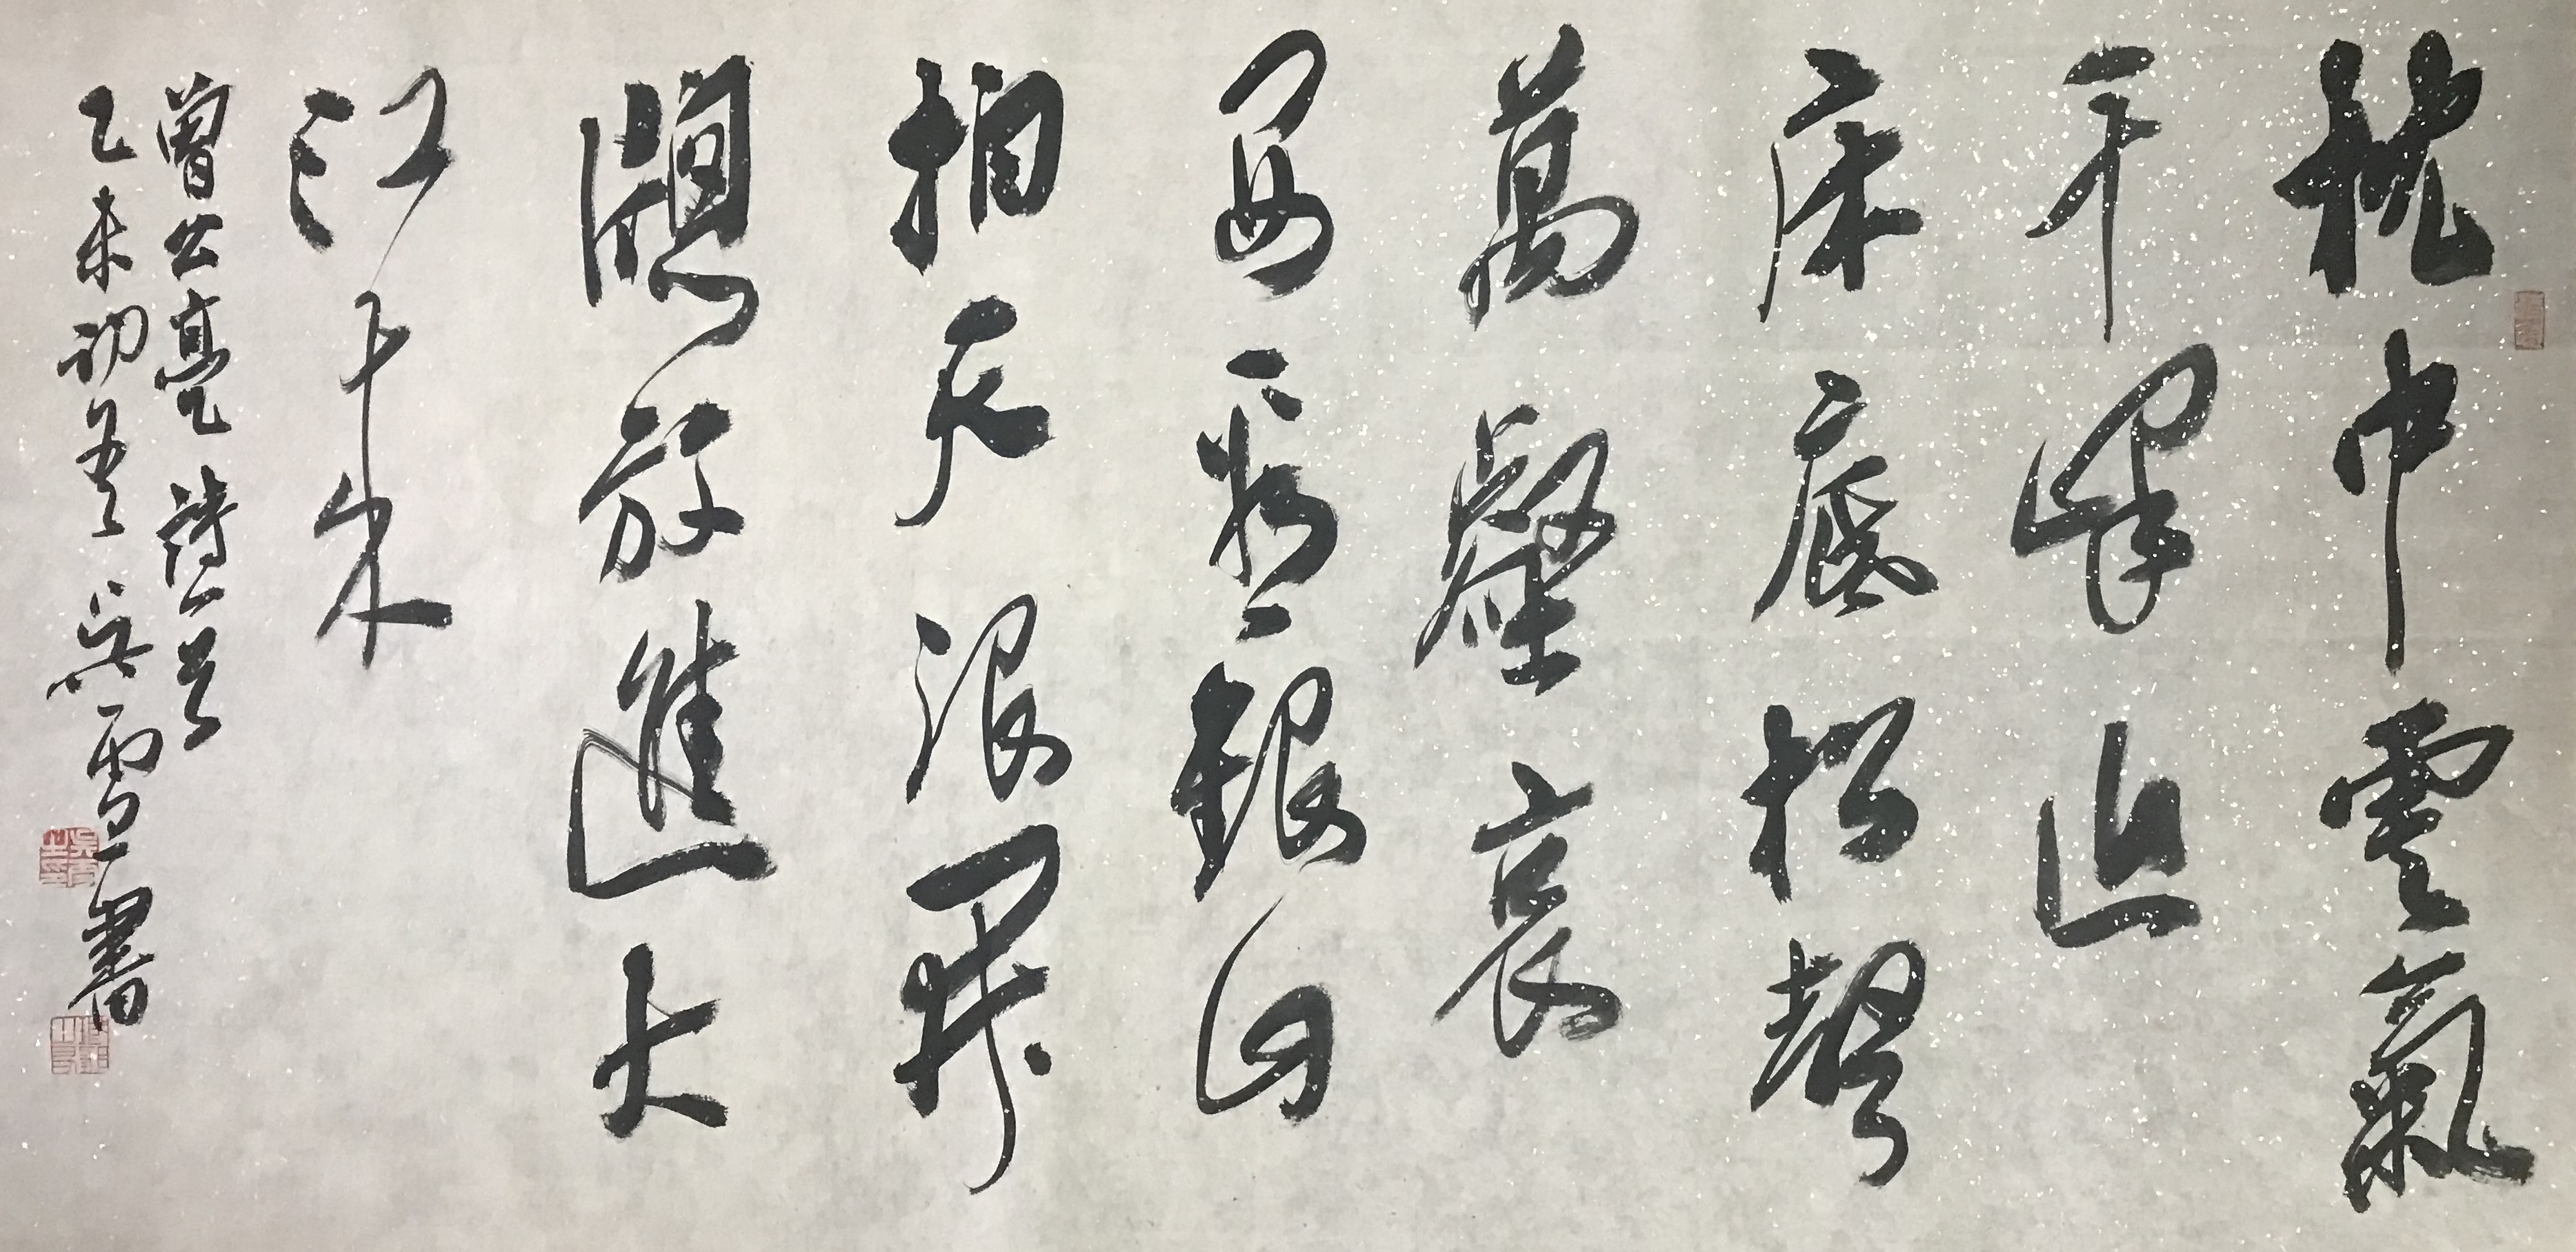 枕中雲氣
千峰近
床底松聲
萬壑哀
要看銀山
拍天浪開
牕放進大
江來
曾公亮詩一首
乙未初夏吳雪書